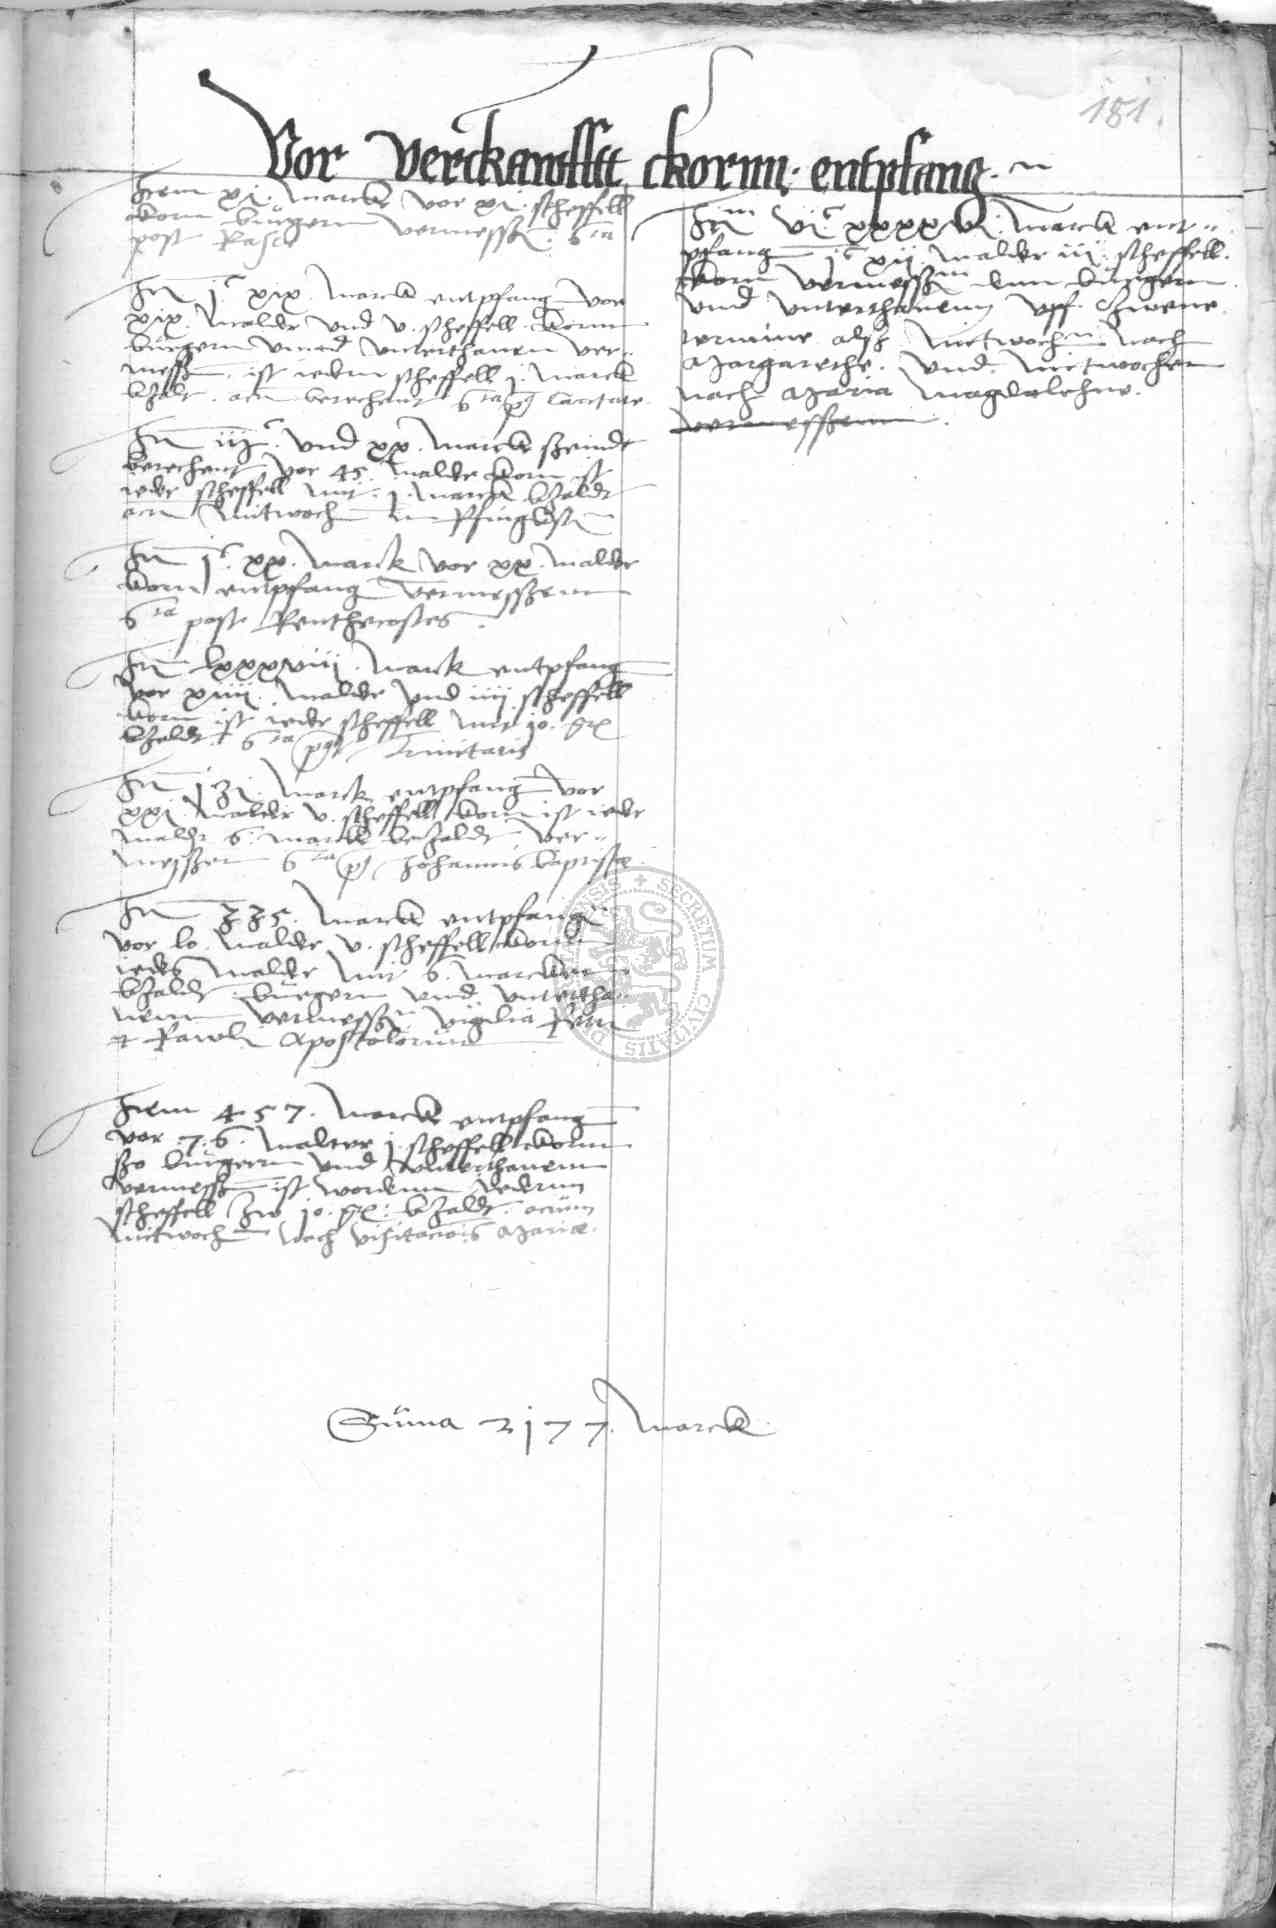 181.
Vor verckaufftt ckornn. entpfang.
Item xi. Marck vor xi. scheffell
korn burgern vermessen. 6ta
post Pasce
Itm jc xix. Marck entpfang vor
xix. malder vnd v. scheffell kornn
burgern vnnd vnterthanen ver-
messen. ist iedern scheffell j. Marck
bzalt. ann berechent 6ta pt Cantate
Itm iijc. vnd xx. Marck seindt
berechent vor 45. malder korn ist
ieder scheffell mit j. Marck bzaldt
am Mitwoch in Pfingsten
Itm jc. xx. Marck vor xx. malder
korn entpfang vermessenn
6ta post Penthecostes.
Itm lxxxviij. Marck entpfang
vor xiiij. malder vnd iiij scheffell
korn ist ieder scheffell mit 10. gr
bzaldt. 6ta pt Trinitatis
Itm 131. Marck entpfang vor
xxi malder v. scheffell korn ist ieder
maldr 6. marck bezaldt ver-
messen 6ta pt Johannis baptistae
Itm 335. Marck entpfang
vor lv. malder v. scheffell korn
iedes malder mit 6. marcken
bzaldt burgern vnd vntertha-
nenn vermessen vigilia Petri
et Pawli Apostolorum
Item 457. Marck entpfang
vor 76. malter j. scheffell kornn
so burgern vnd vnterthanenn
vermessen ist wordenn iedernn
scheffell zw 10. gr: bzaldt. actum
mitwoch nach visitationis Mariae.
Itm vic xxxxvi. Marck ent-
pfang jc xij. malder iij. scheffell.
korn vermessen den burgern
vnd vnterthanenn vff zwene
termine alss mitwochen nach
Margarethe. vnd. mitwochen
nach Maria magdalehne.
vermessenn.
Suma 2177. Marck
SECRETUM CIVITATIS